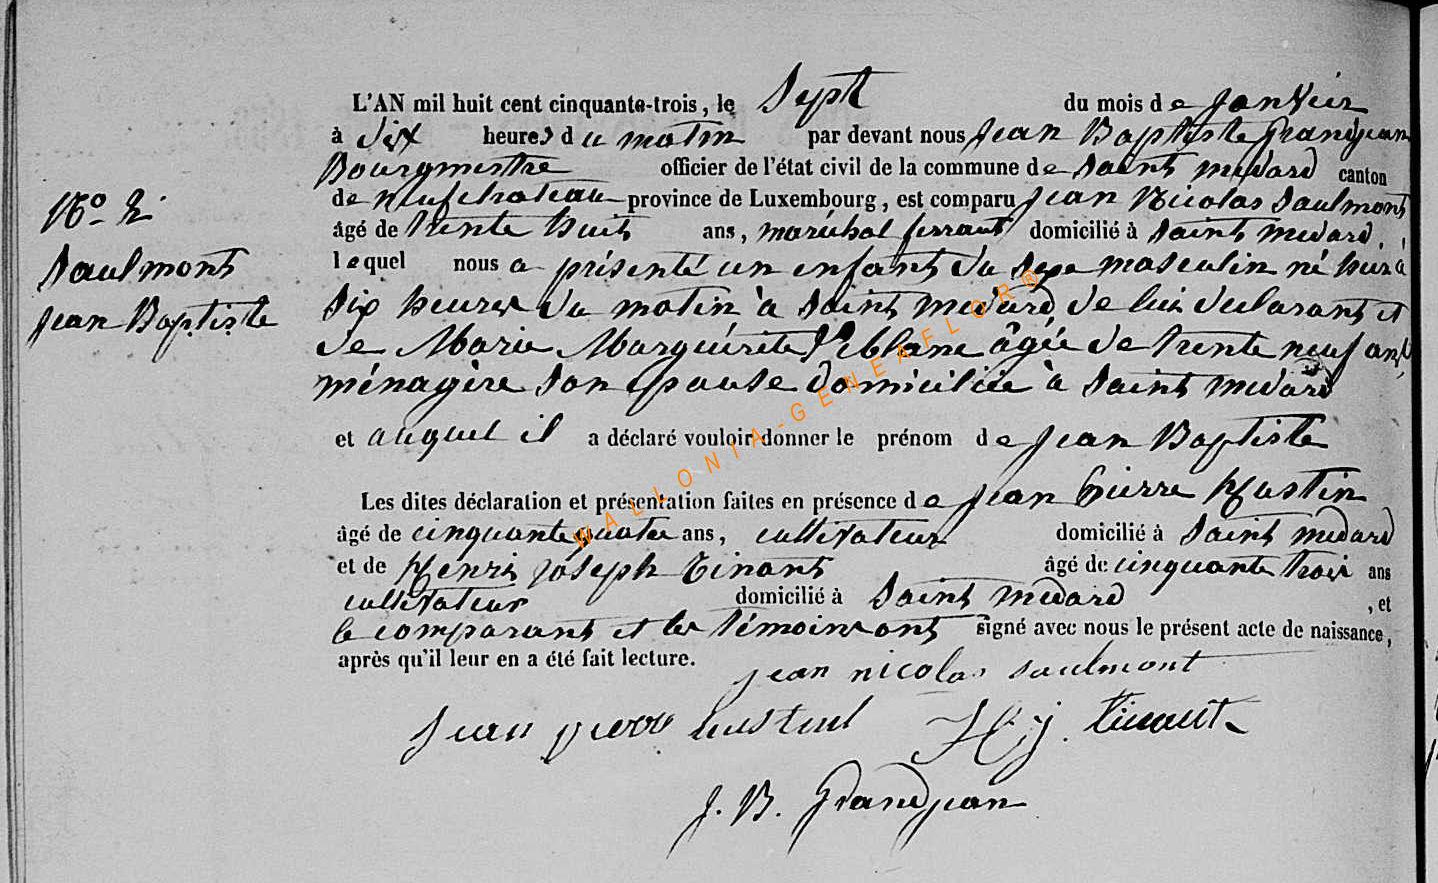 L'AN mil huit cent cinquante-trois, le Sept du mois de Janvier
à Six heures du matin par devant nous Jean Baptiste Grandjean
Bourgmestre officier de l'état civil de la commune de Saint médard canton
de neufchateau province de Luxembourg, est comparu Jean Nicolas Saulmont
âgé de trente huit ans, maréchal ferrant domicilié à Saint médard,
lequel nous a présenté un enfant du Sexe masculin né hier a
Six heures du matin à Saint médard, de lui déclarant et
de Marie Marguérite Leblanc âgée de trente neuf ans,
ménagère Son épouse domiciliée à Saint médard
et auquel il a déclaré vouloir donner le prénom de Jean Baptiste
Les dites déclaration et présentation faites en présence de Jean Pierre Hustin
âgé de cinquante quatre ans, cultivateur domicilié à Saint médard
et de Henri Joseph Tinant âgé de cinquante trois ans
cultivateur domicilié à Saint médard, et
le comparant et les témoins ont signé avec nous le présent acte de naissance,
après qu'il leur en a été fait lecture.
No 2
Saulmont
Jean Baptiste
jean nicolas saulmont
Jean pierre H. J. tinant
J. B. Grandjean
WALLONIA-GENEAFLOR®